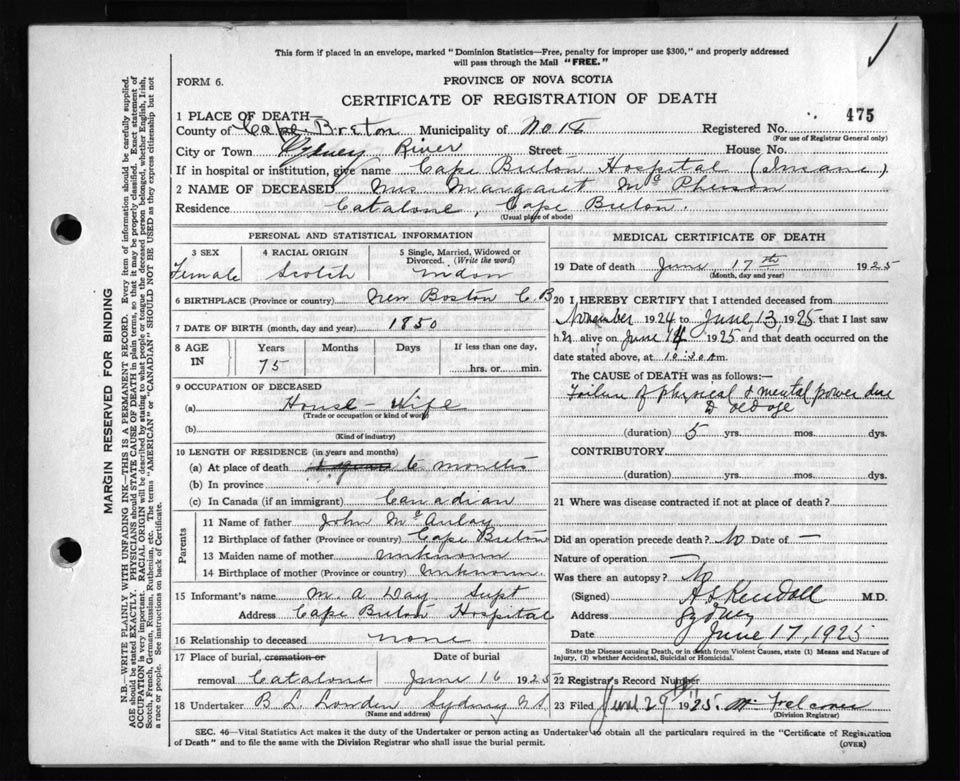 This form if placed in an envelope, marked "Dominion Statistics—Free, penalty for improper use $300," and properly addressed
will pass through the Mail "FREE."
FORM 6.
PROVINCE OF NOVA SCOTIA
CERTIFICATE OF REGISTRATION OF DEATH
475
1 PLACE OF DEATH—
County of Cape Breton Municipality of Registered No.
(For use of Registrar General only)
City or Town Sydney River Street House No.
If in hospital or institution, give name Cape Breton Hospital (Insane)
2 NAME OF DECEASED Mrs. Margaret McPherson
Residence Catalone, Cape Breton.
(Usual place of abode)
PERSONAL AND STATISTICAL INFORMATION
3 SEX
Female
4 RACIAL ORIGIN
Scotch
5 Single, Married, Widowed or
Divorced. (Write the word)
6 BIRTHPLACE (Province or country) New Boston C B
7 DATE OF BIRTH (month, day and year) 1850
8 AGE IN Years Months Days If less than one day,
75 hrs. or min.
9 OCCUPATION OF DECEASED
(a) House-Wife
(Trade or occupation or kind of work)
(b)
(Kind of industry)
10 LENGTH OF RESIDENCE (in years and months)
(a) At place of death 6 months
(b) In province
(c) In Canada (if an immigrant) Canadian
Parents
11 Name of father John McAulay
12 Birthplace of father (Province or country) Cape Breton
13 Maiden name of mother unknown
14 Birthplace of mother (Province or country) unknown.
15 Informant's name M. A Day Supt
Address Cape Breton Hospital
16 Relationship to deceased none
17 Place of burial, cremation or
removal Catalone
Date of burial
June 16 1925
18 Undertaker B. L. Sydney N S
(Name and address)
MEDICAL CERTIFICATE OF DEATH
19 Date of death June 17th 1925
(Month, day and year)
20 I HEREBY CERTIFY that I attended deceased from
November 1924 to June, 13, 1925 that I last saw
her alive on June 14 1925 and that death occurred on the
date stated above, at 10.30 a m.
The CAUSE of DEATH was as follows:—
Failure of physical & mental power due
to old age
(duration) 5 yrs. mos. dys.
CONTRIBUTORY
(duration) yrs. mos. dys.
21 Where was disease contracted if not at place of death?
Did an operation precede death? No Date of —
Nature of operation —
Was there an autopsy? No
(Signed) A S Kendall M.D.
Address Sydney
Date June 17, 1925
State the Disease causing Death, or in death from Violent Causes, state (1) Means and Nature of
Injury, (2) whether Accidental, Suicidal or Homicidal.
22 Registrar's Record Number
23 Filed June 29 1925.
(Division Registrar)
SEC. 46—Vital Statistics Act makes it the duty of the Undertaker or person acting as Undertaker to obtain all the particulars required in the "Certificate of Registration
of Death" and to file the same with the Division Registrar who shall issue the burial permit.
(OVER)
MARGIN RESERVED FOR BINDING
N.B.—WRITE PLAINLY WITH UNFADING INK—THIS IS A PERMANENT RECORD. Every item of information should be carefully supplied.
AGE should be stated EXACTLY. PHYSICIANS should STATE CAUSE OF DEATH in plain terms, so that it may be properly classified. Exact statement of
OCCUPATION is very important. RACIAL ORIGIN will be described by stating to what people or tongue the deceased person belonged, whether English, Irish,
Scotch, French, German, Russian, Ruthenian, etc. The terms "AMERICAN" or "CANADIAN" SHOULD NOT BE USED as they express citizenship but not
a race or people. See instructions on back of Certificate.